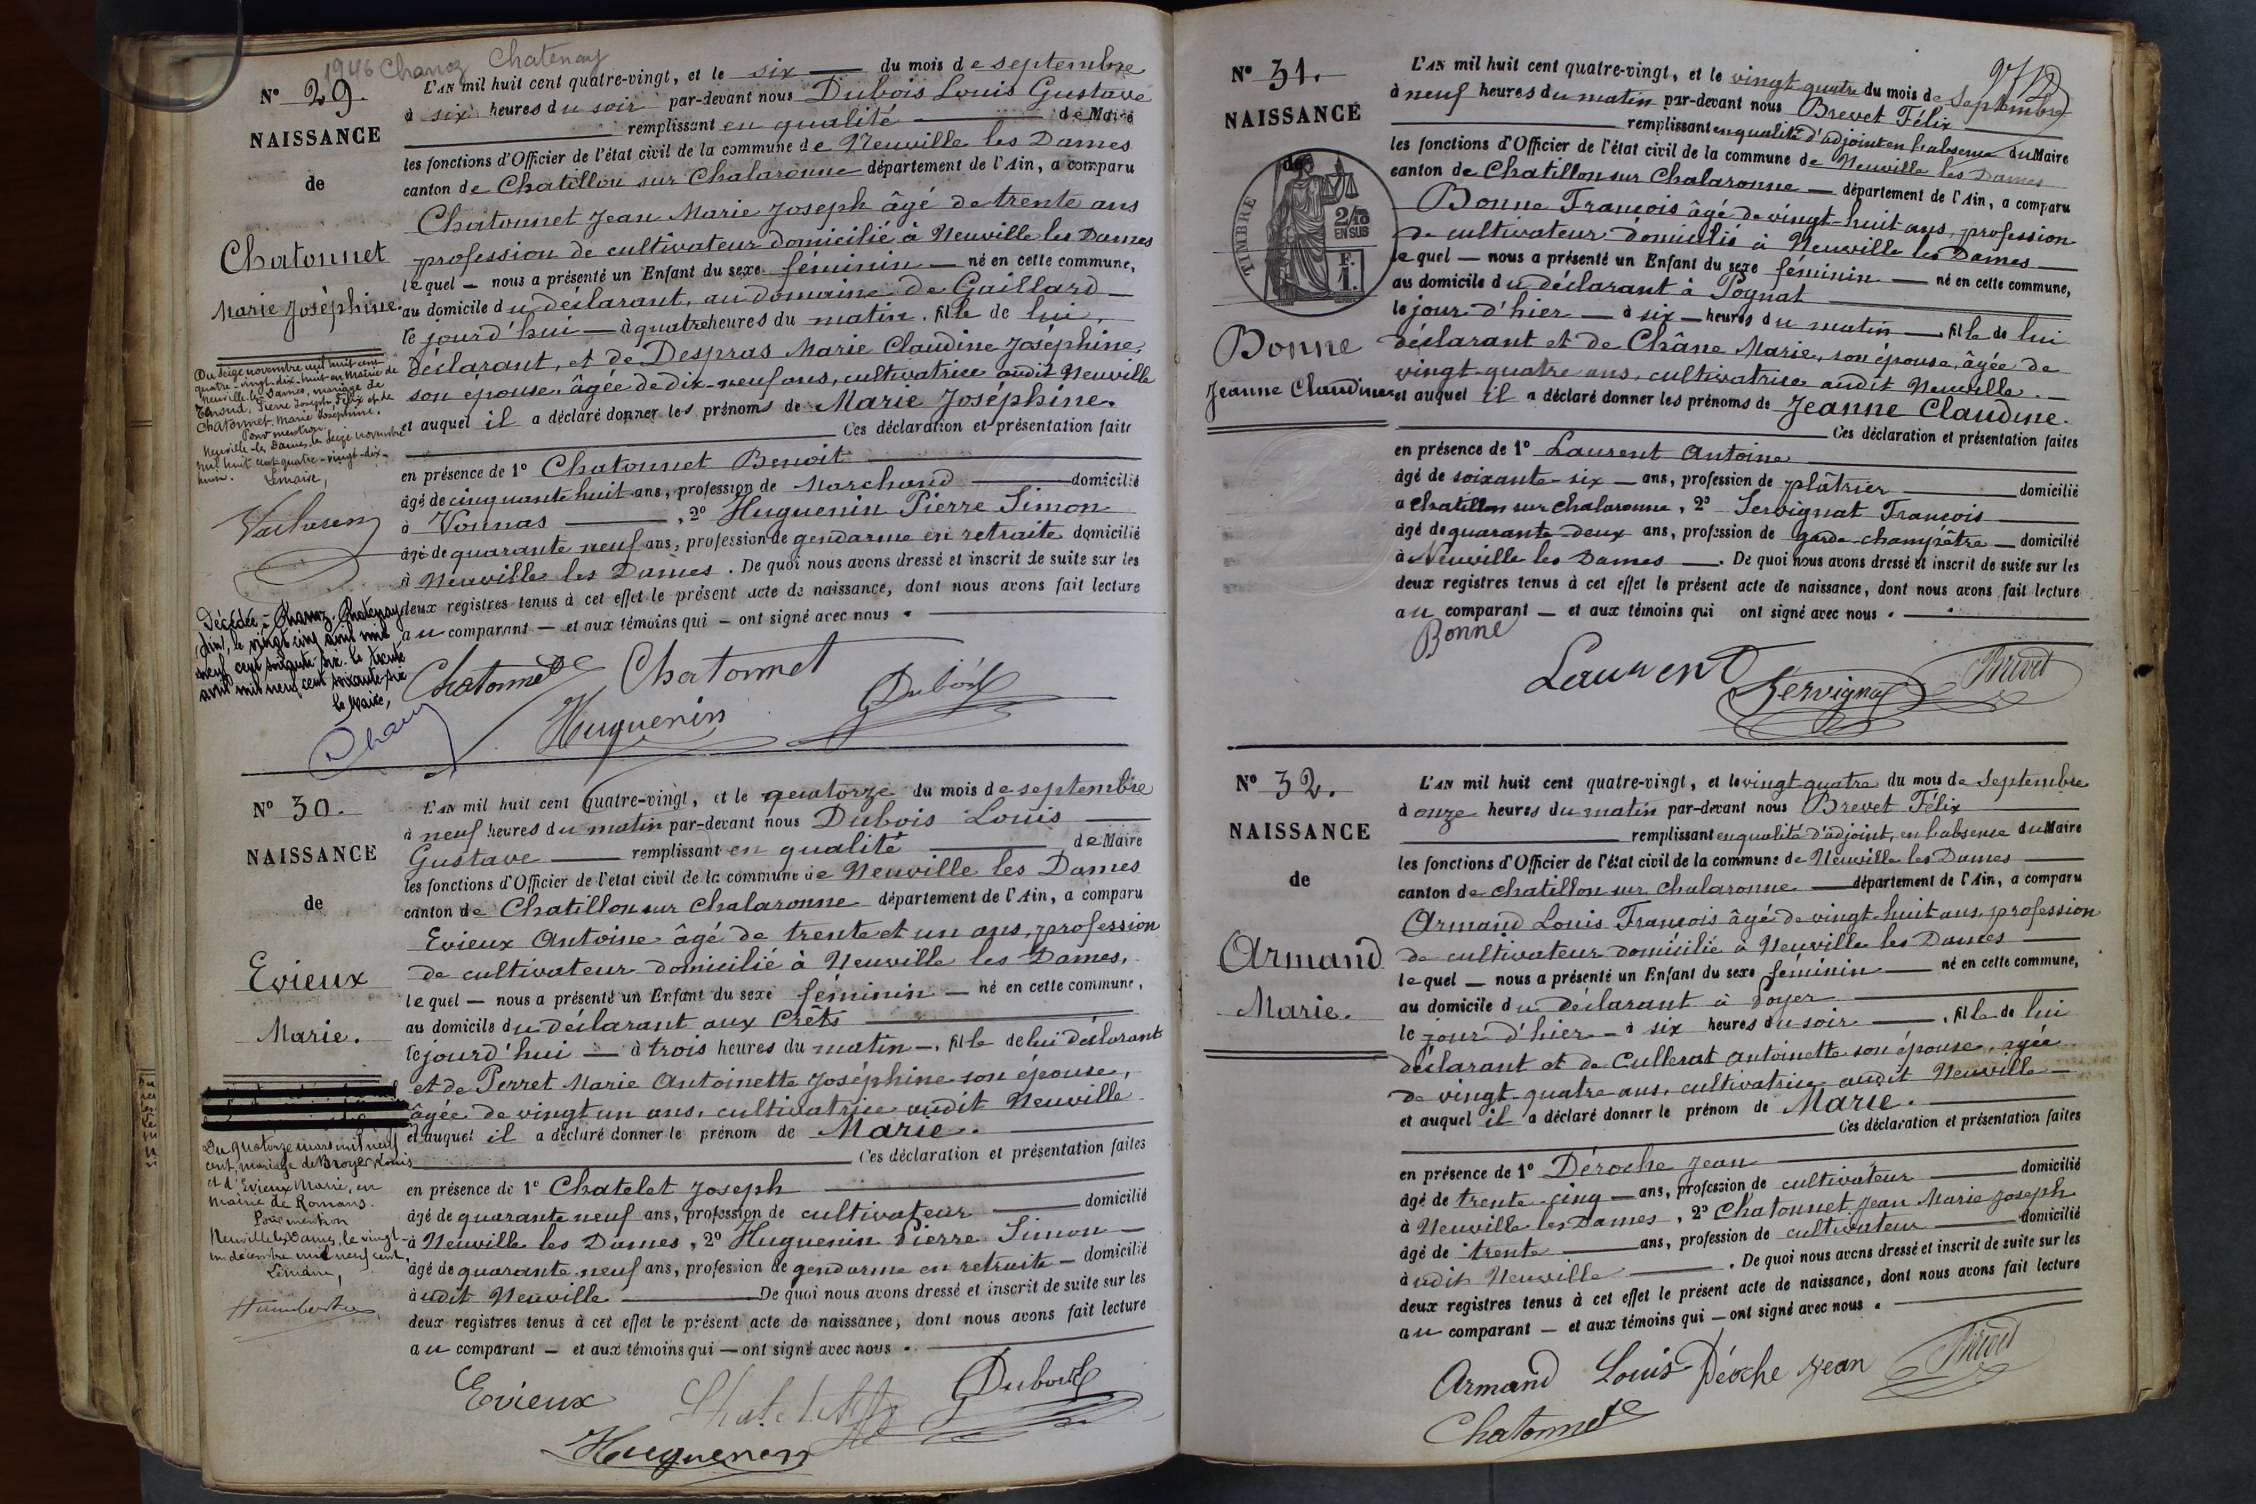 1946 Chanoz Chatenay
N° 29.
NAISSANCE
de
Chatonnet
Marie Joséphine.
Du seize novembre mil huit cent
quatre-vingt-dix-huit en Mairie de
Neuville-les-Dames, mariage de
Pierre Joseph Félix et de
Chatonnet Marie Joséphine.
Pour mention.
Neuville-les-Dames, le seize novembre
mil huit cent quatre-vingt-dix-
huit. Lemaire,
Décédée à Chanoz-Chatenay
(Ain), le vingt cinq avril mil
neuf cent soixante six. Le trente
avril mil neuf cent soixante-six
le Maire,
L'AN mil huit cent quatre-vingt, et le six du mois de septembre
à six heures du soir par-devant nous Dubois Louis Gustave
remplissant en qualité de Maire
les fonctions d'Officier de l'état civil de la commune de Neuville les Dames
canton de Chatillon sur Chalaronne département de l'Ain, a comparu
Chatonnet Jean Marie Joseph âgé de trente ans
profession de cultivateur domicilié à Neuville les Dames
lequel — nous a présenté un Enfant du sexe féminin — né en cette commune,
au domicile du déclarant, au domaine de Gaillard —
le jourd'hui — à quatre heures du matin, fille de lui,
déclarant, et de Despras Marie Claudine Joséphine,
son épouse, âgée de dix-neuf ans, cultivatrice audit Neuville
et auquel il a déclaré donner les prénoms de Marie Joséphine.
Ces déclaration et présentation faite
en présence de 1° Chatonnet Benoit
âgé de cinquante huit ans, profession de Marchand domicilié
à Vonnas , 2° Huguenin Pierre Simon
âgé de quarante neuf ans, profession de gendarme en retraite domicilié
à Neuville les Dames . De quoi nous avons dressé et inscrit de suite sur les
deux registres tenus à cet effet le présent acte de naissance, dont nous avons fait lecture
au comparant — et aux témoins qui — ont signé avec nous .
Chatonnet Chatonnet
Huguenin Dubois
N° 30.
NAISSANCE
de
Evieux
Marie.
Du quatorze mars mil neuf
cent, mariage de Broyer Louis
et d'Evieux Marie, en
mairie de Romans.
Pour mention
Neuville les Dames, le vingt-
un décembre mil neuf cent.
Lemaire,
L'AN mil huit cent quatre-vingt, et le quatorze du mois de septembre
à neuf heures du matin par-devant nous Dubois Louis
Gustave remplissant en qualité de Maire
les fonctions d'Officier de l'état civil de la commune de Neuville les Dames
canton de Chatillon sur Chalaronne département de l'Ain, a comparu
Evieux Antoine âgé de trente et un ans, profession
de cultivateur domicilié à Neuville les Dames,
lequel — nous a présenté un Enfant du sexe féminin — né en cette commune,
au domicile du déclarant aux Crêts
le jourd'hui — à trois heures du matin —, fille de lui déclarant
et de Perret Marie Antoinette Joséphine son épouse,
âgée de vingt un ans, cultivatrice audit Neuville
et auquel il a déclaré donner le prénom de Marie.
Ces déclaration et présentation faites
en présence de 1° Chatelet Joseph
âgé de quarante neuf ans, profession de cultivateur domicilié
à Neuville les Dames , 2° Huguenin Pierre Simon —
âgé de quarante neuf ans, profession de gendarme en retraite — domicilié
audit Neuville De quoi nous avons dressé et inscrit de suite sur les
deux registres tenus à cet effet le présent acte de naissance, dont nous avons fait lecture
au comparant — et aux témoins qui — ont signé avec nous .
Evieux Chatelet Dubois
Huguenin
N° 31.
NAISSANCE
de
TIMBRE
2/10
EN SUS
F.
1.
Bonne
Jeanne Claudine
L'AN mil huit cent quatre-vingt, et le vingt quatre du mois de Septembre
à neuf heures du matin par-devant nous Brevet Félix
remplissant en qualité d'adjoint en l'absence du Maire
les fonctions d'Officier de l'état civil de la commune de Neuville les Dames
canton de Chatillon sur Chalaronne — département de l'Ain, a comparu
Bonne François âgé de vingt-huit ans, profession
de cultivateur domicilié à Neuville les Dames —
lequel — nous a présenté un Enfant du sexe féminin — né en cette commune,
au domicile du déclarant à Pognat
le jour d'hier — à six — heures du matin —, fille de lui
déclarant et de Châne Marie, son épouse, âgée de
vingt-quatre ans, cultivatrice audit Neuville. —
et auquel il a déclaré donner les prénoms de Jeanne Claudine.
Ces déclaration et présentation faites
en présence de 1° Laurent Antoine
âgé de soixante-six — ans, profession de plâtrier domicilié
à Chatillon sur Chalaronne , 2° Servignat François
âgé de quarante deux ans, profession de garde-champêtre — domicilié
à Neuville les Dames —. De quoi nous avons dressé et inscrit de suite sur les
deux registres tenus à cet effet le présent acte de naissance, dont nous avons fait lecture
au comparant — et aux témoins qui ont signé avec nous .
Bonne
Laurent Servignat Brevet
N° 32.
NAISSANCE
de
Armand
Marie.
L'AN mil huit cent quatre-vingt, et le vingt-quatre du mois de Septembre
à onze heures du matin par-devant nous Brevet Félix
remplissant en qualité d'adjoint, en l'absence du Maire
les fonctions d'Officier de l'état civil de la commune de Neuville les Dames
canton de Chatillon sur Chalaronne — département de l'Ain, a comparu
Armand Louis François âgé de vingt-huit ans, profession
de cultivateur domicilié à Neuville les Dames
lequel — nous a présenté un Enfant du sexe féminin — né en cette commune,
au domicile du déclarant à
le jour d'hier — à six heures du soir —, fille de lui
déclarant et de Cullerat Antoinette son épouse, agée
de vingt-quatre ans, cultivatrice audit Neuville —
et auquel il a déclaré donner le prénom de Marie.
Ces déclaration et présentation faites
en présence de 1° Déroche Jean
âgé de trente-cinq — ans, profession de cultivateur domicilié
à Neuville les Dames , 2° Chatonnet Jean Marie Joseph
âgé de trente ans, profession de cultivateur domicilié
audit Neuville . De quoi nous avons dressé et inscrit de suite sur les
deux registres tenus à cet effet le présent acte de naissance, dont nous avons fait lecture
au comparant — et aux témoins qui — ont signé avec nous .
Armand Louis Déroche Jean Brevet
Chatonnet